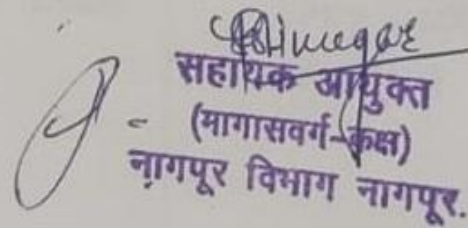 सहायक आयुक्त
(मागासवर्ग-कक्ष)
नागपूर विभाग नागपूर.